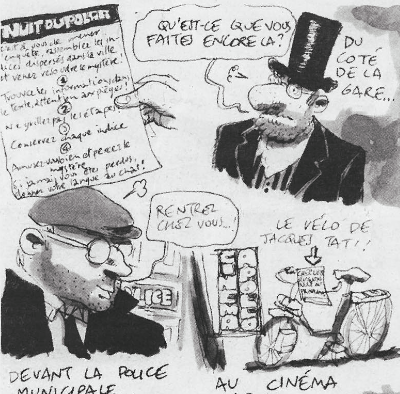 NUIT DU POLAR
c'est à vous de mener
enquête, rassemblez les in-
dices dispersés dans la ville
et venez résoudre le mystère.
①
Trouvez les informations dans
le texte, attention aux pièges!
②
Ne grillez pas les étapes!
③
Conservez chaque indice
④
Amusez-vous bien et percez le
mystère
si jamais vous êtes perdus,
donnez votre langue au chat!
QU'EST-CE QUE VOUS
FAITES ENCORE LA?
DU
CÔTÉ
DE LA
GARE...
RENTREZ
CHEZ VOUS...!
LICE
DEVANT LA POLICE
MUNICIPALE
LE VÉLO DE
JACQUES TATI!
AU CINÉMA